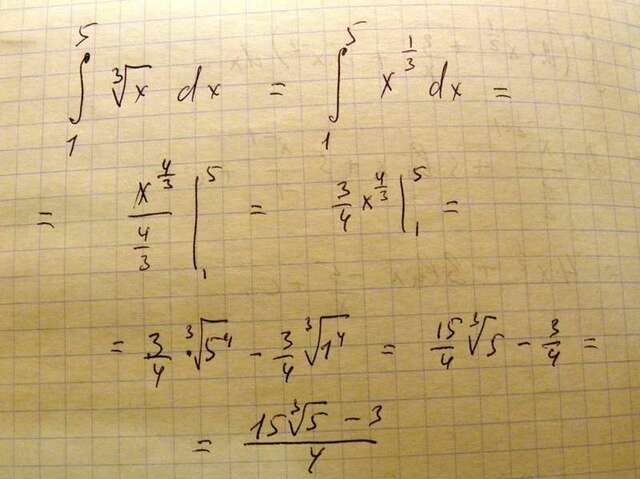 ∫₁⁵ ∛x dx = ∫₁⁵ x^(1/3) dx =
= x^(4/3) / (4/3) |₁⁵ = 3/4 x^(4/3) |₁⁵ =
= 3/4 · ∛(5⁴) - 3/4 ∛(1⁴) = 15/4 ∛5 - 3/4 =
= (15∛5 - 3) / 4